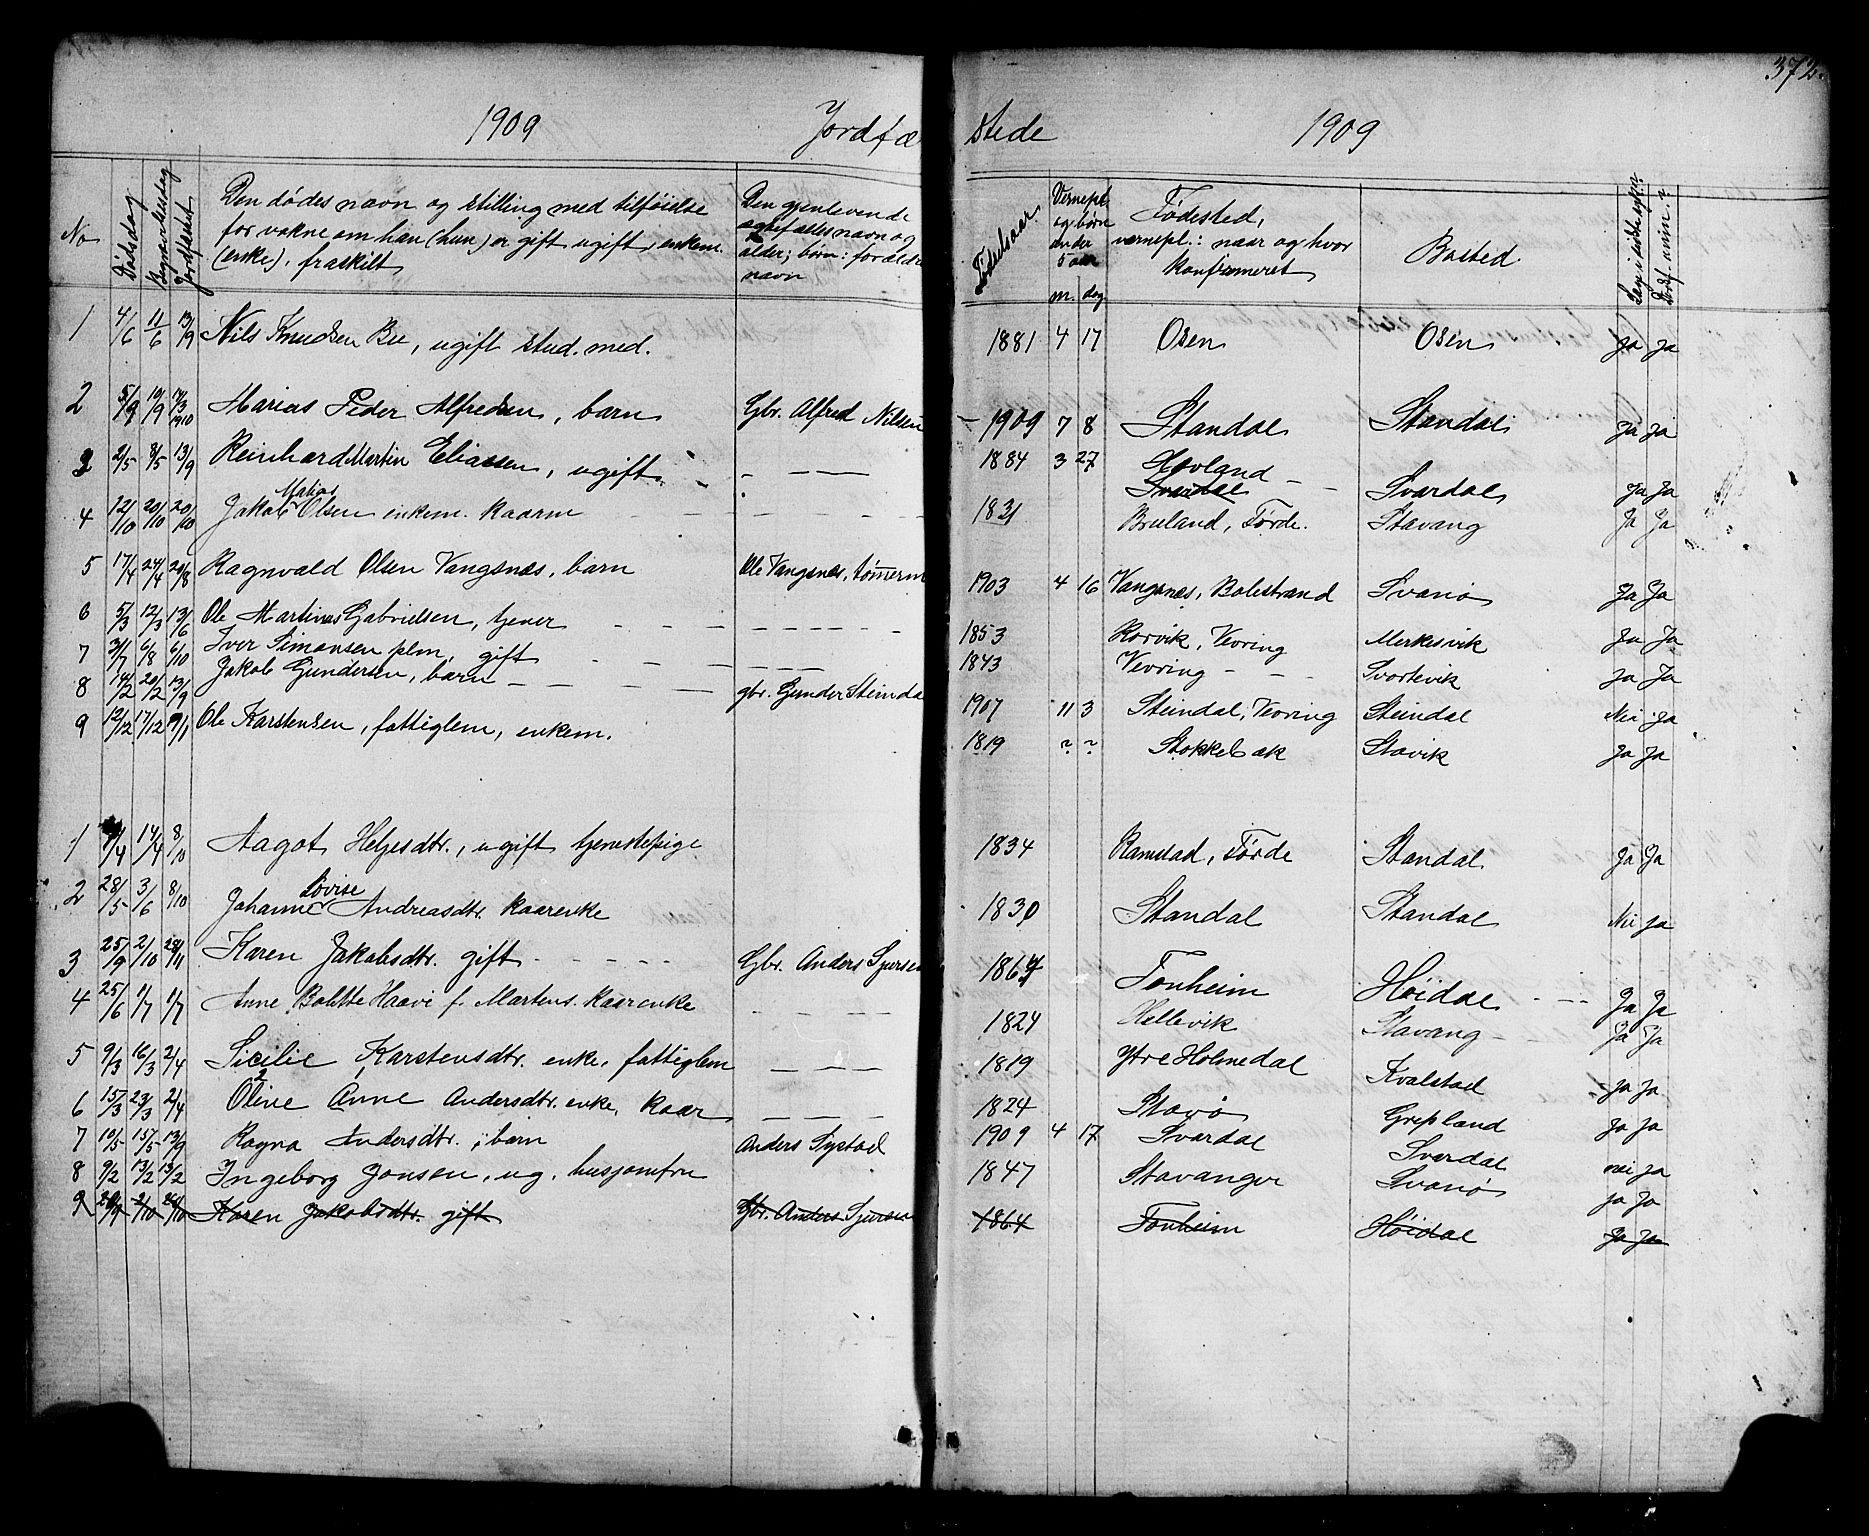 372.
1909 Jordfæ
stede 1909
No Dødsdag Begravelsesdag Jordfæstet Den dødes navn og stilling med tilføielse for voksne om han (hun) er gift ugift, enkem. (enke), fraskilt
Den gjenlevende egtefælles navn og alder; børn: forældr navn
Fødselsaar Vernepl. og børn under 5 aar m. dag Fødested, vernepl.: naar og hvor konfirmeret Bosted.
1 4/6 11/6 13/9 Nils Knudsen Bee, ugift stud. med. 1881 4 17 Osen Osen Ja Ja
2 5/9 19/9 17/3 1910 Marius Peder Alfredsen, barn Gbr. Alfred Nilsen 1909 7 8 Standal Standal Ja Ja
3 2/5 8/5 13/9 Reinhard Martin Eliassen, ugift 1884 3 27 Hovland Svardal Svardal Ja Ja
4 12/10 20/10 20/10 Jakob Matias Olsen enkem. kaarm 1831 Bruland, Førde. Stavang Ja Ja
5 17/4 24/4 29/8 Ragnvald Olsen Vangsnæs, barn Ole Vangsnæs, tømerm 1903 4 16 Vangsnæs, Balestrand Svanø Ja Ja
6 5/3 12/3 13/6 Ole Martinus Gabrielsen, tjener 1853 Rorvik, Vevring Merkesvik Ja Ja
7 31/7 6/8 6/10 Iver Simonsen plm, gift 1843 Vevring Svortevik Ja Ja
8 14/2 20/2 13/9 Jakob Gundersen, barn gbr. Gunder Steinda 1907 11 3 Steindal, Vevring Steindal Nei Ja
9 12/12 17/12 9/1 Ole Karstensen, fattiglem, enkem. 1819 ? ? Stokkebæk Stavik Ja Ja
1 /4 14/4 8/10 Aagot Heljesdtr., ugift tjenestepige 1834 Ramstad, Førde Standal Ja Ja
2 28/5 3/6 8/10 Johanne Lovise Andreasdtr. kaarenke 1830 Standal Standal Nei Ja
3 25/9 2/10 28/11 Karen Jakobsdtr. gift Gbr. Anders Sjursen 1864 Tonheim Høidal Ja Ja
4 25/6 1/7 1/7 Anne Bolette Haavi f. Martens. kaarenke 1824 Hellevik Stavang Ja Ja
5 9/3 16/3 2/4 Sicelie Karstensdtr. enke, fattiglem 1819 Ytre Holmedal Kvalstad Ja Ja
6 15/3 23/3 2/4 Oline Anne Andersdtr. enke, kaar 1824 Stavø Grepland Ja Ja
7 10/5 15/5 13/9 Ragna Andersdtr. barn Anders Systad 1909 4 17 Svardal Svardal nei ja
8 9/2 13/2 13/2 Ingeborg Jonsen, ug. husjomfru 1847 Stavanger Svanø Ja Ja
9 2/10 Karen Jakobsdtr. gift Gbr. Anders Sjursen 1864 Tonheim Høidal Ja Ja